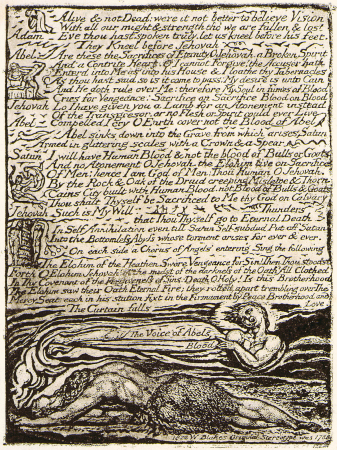 Alive & not Dead: were it not better to believe Vision
With all our might & strength tho we are fallen & lost
Adam Eve thou hast spoken truly. let us kneel before his feet.
They Kneel before Jehovah
Abel Are these the Sacrifices of Eternity O Jehovah, a Broken Spirit
And a Contrite Heart. O I cannot Forgive! the Accuser hath
Enterd into Me as into his House & I loathe thy Tabernacles
As thou hast said so is it come to pass: My desire is unto Cain
And He doth rule over Me: therefore My Soul in fumes of Blood
Cries for Vengeance: Sacrifice on Sacrifice Blood on Blood
Jehovah Lo I have given you a Lamb for an Atonement instead
Of the Transgresor, or no Flesh or Spirit could ever Live
Abel Compelled I cry O Earth cover not the Blood of Abel
Abel sinks down into the Grave. from which arises Satan
Armed in glittering scales with a Crown & a Spear
Satan I will have Human Blood & not the blood of Bulls or Goats
And no Atonement O Jehovah the Elohim live on Sacrifice
Of Men: hence I am God of Men: Thou Human O Jehovah.
By the Rock & Oak of the Druid creeping Mistletoe & Thorn
Cains City built with Human Blood, not Blood of Bulls & Goats
Thou shalt Thyself be Sacrificed to Me thy God on Calvary
Jehovah Such is My Will. Thunders
that Thou Thyself go to Eternal Death
In Self Annihilation even till Satan Self-subdud Put off Satan
Into the Bottomless Abyss whose torment arises for ever & ever.
On each side a Chorus of Angels entering Sing the following
The Elohim of the Heathen Swore Vengeance for Sin! Then Thou stoodst
Forth O Elohim Jehovah! in the midst of the darkness of the Oath! All Clothed
In Thy Covenant of the Forgiveness of Sins: Death O Holy! Is this Brotherhood
The Elohim saw their Oath Eternal Fire; they rolled apart trembling over The
Mercy Seat: each in his station fixt in the Firmament by Peace Brotherhood and Love.
The Curtain falls
The Voice of Abels
Blood
1822 W Blakes Original Stereotype was 1788